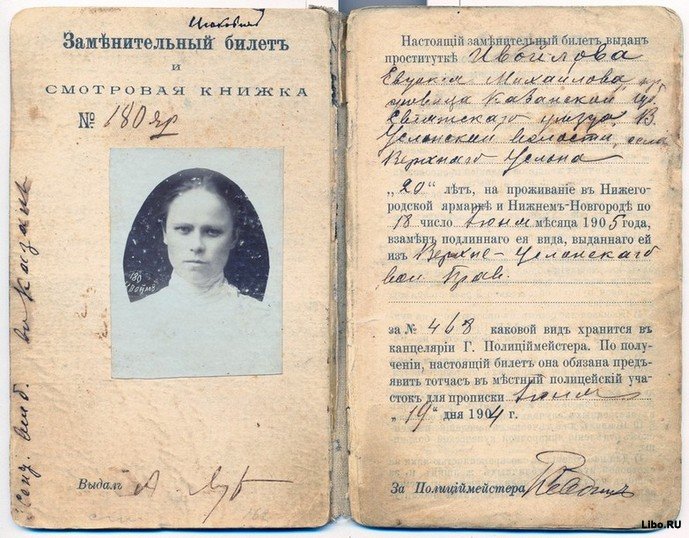 Замѣнительный билетъ
и
СМОТРОВАЯ КНИЖКА
№ 180 яр
180
Выдалъ А
въ Казань
Настоящій замѣнительный билетъ выданъ
проституткѣ Ивойлова
Евдокія Михайлова, кр
Казанской губ.
Свіяжскаго уѣзда, В.
Услонской волости, села
Верхняго Услона
„20“ лѣтъ, на проживаніе въ Нижего-
родской ярмаркѣ и Нижнемъ-Новгородѣ по
18 число Іюня мѣсяца 1905 года,
взамѣнъ подлиннаго ея вида, выданнаго ей
изъ Верхне-Услонскаго
вол. Прав.
за № 468 каковой видъ хранится въ
канцеляріи Г. Полиціймейстера. По полу-
ченіи, настоящій билетъ она обязана предъ-
явить тотчасъ въ мѣстный полицейскій уча-
стокъ для прописки Іюня
„19“ дня 1904 г.
За Полиціймейстера
Libo.RU